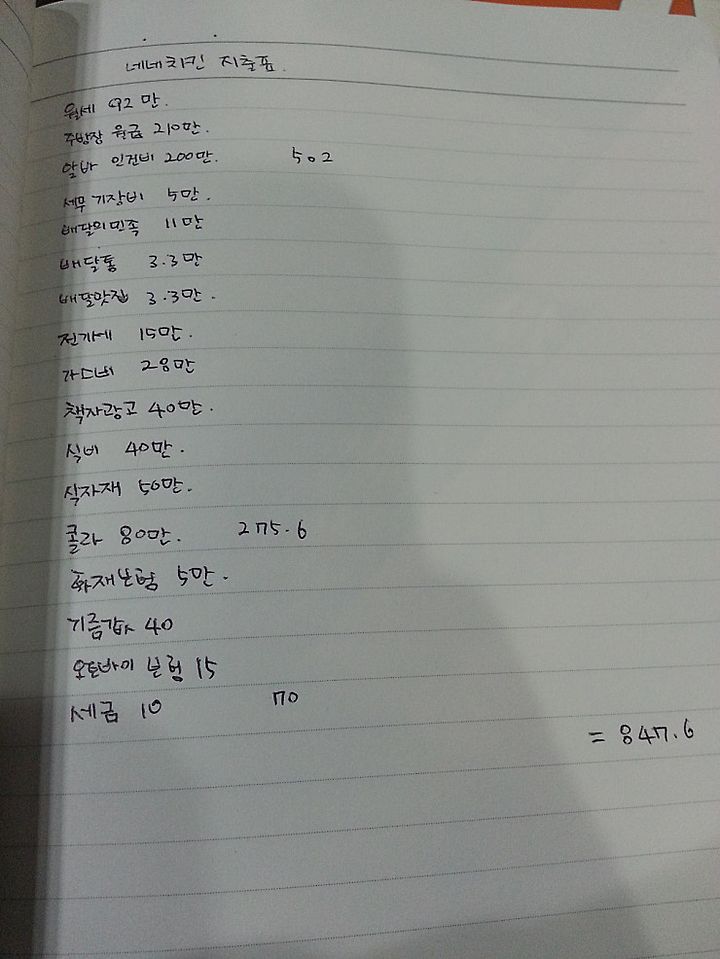 네네치킨 지출표.
월세 92만.
주방장 월급 210만.
알바 인건비 200만. 502
세무 기장비 5만.
배달의민족 11만
배달통 3.3만
배달맛집 3.3만.
전기세 15만.
가스비 28만
책자광고 40만.
식비 40만.
식자재 50만.
콜라 80만. 275.6
화재보험 5만.
기름값 40
오토바이 보험 15
세금 10 70
= 847.6